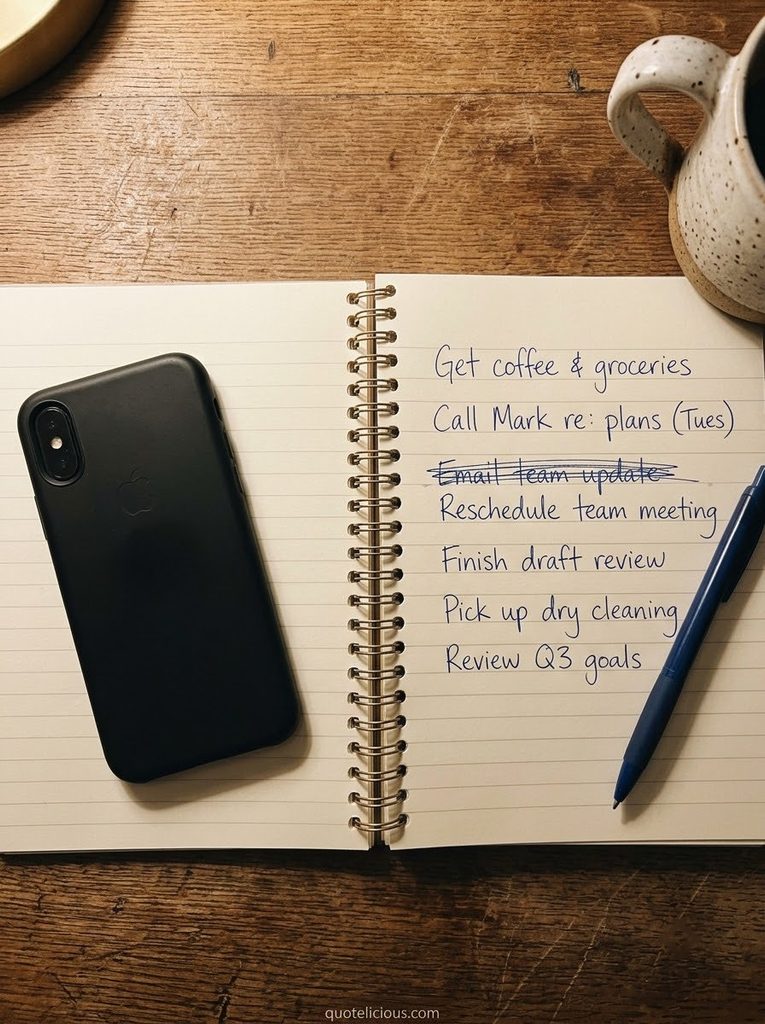 Get coffee & groceries
Call Mark re: plans (Tues)
Email team update
Reschedule team meeting
Finish draft review
Pick up dry cleaning
Review Q3 goals
quotelicious.com